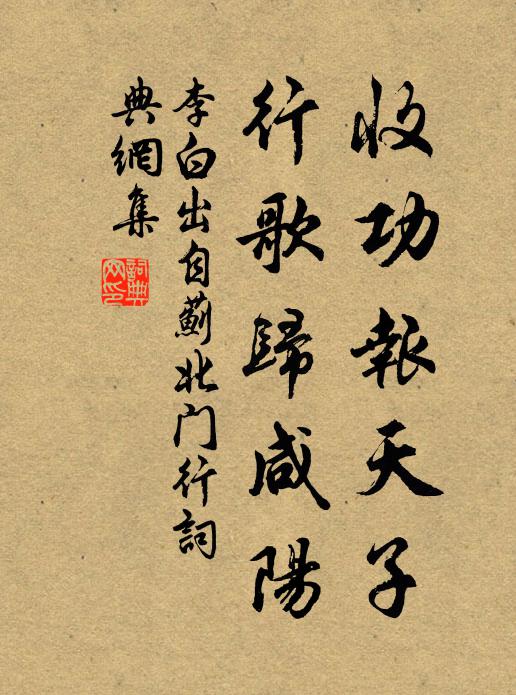 收功報天子
行歌歸咸陽
李白出自薊北门行詞
典網集
詞典
网印